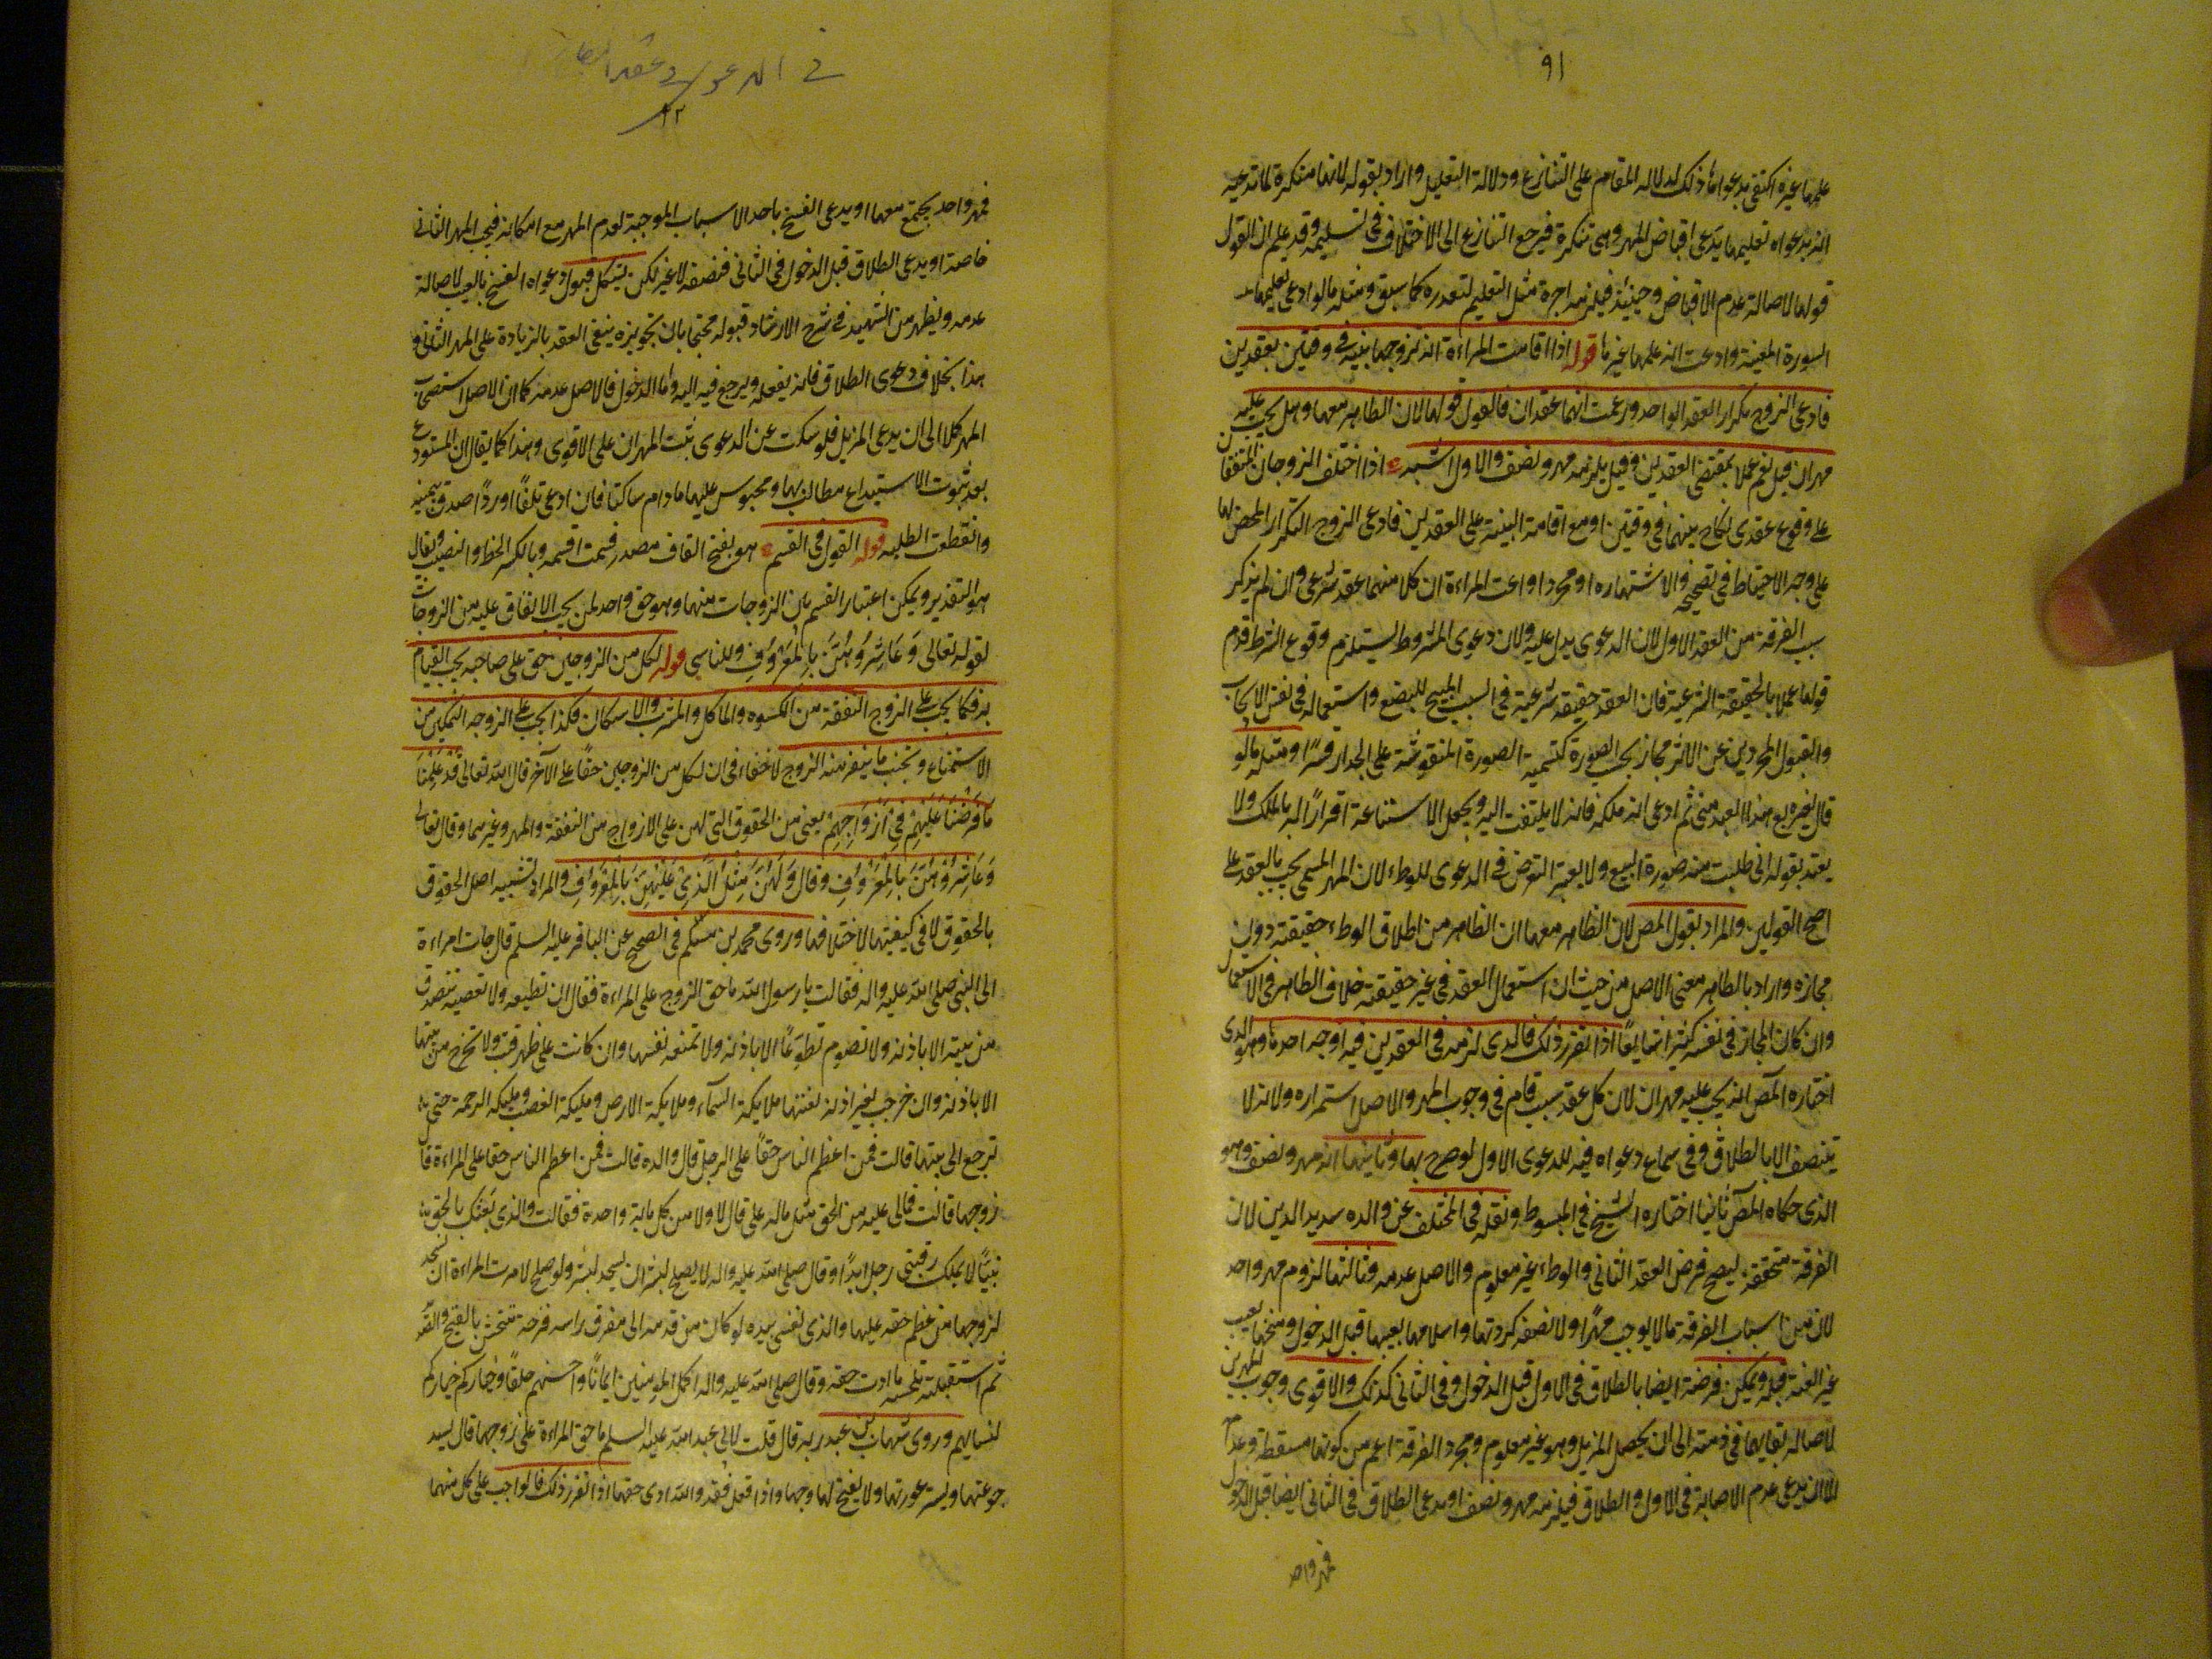 ٩١
علمها غيره اكتفى بدعواها ذلك لدلالة المقام على التنازع ودلالة التعليل واراد بقوله لانها منكرة لما تدعيه
انه بدعواه تعليمها يدعى اقباض المهر وهى تنكره فيرجع التنازع الى الاختلاف فى تسليمه وقد علم ان القول
قولها لاصالة عدم الاقباض وحينئذ فيلزمه اجرة مثل التعليم لتعذره كما سبق ومثله ما لو ادعى تعليمها
السورة المعينة وادعت انه علمها غيرها قوله اذا اقامت المراءة انه تزوجها بينة فى وقتين بعقدين
فادعى الزوج تكرار العقد الواحد وزعمت انهما عقدان فالقول قولها لان الظاهر معها وهل يجب عليه
مهران قيل نعم عملا بمقتضى العقدين وقيل يلزمه مهر ونصف والاول اشبه اذا اختلف الزوجان المتفقان
على وقوع عقدى نكاح بينهما فى وقتين او مع اقامة البينة على العقدين فادعى الزوج التكرار المحض لها
على وجه الاحتياط فى تصحيحه والاشتهار او مجردا وادعت المراءة ان كلا منهما عقد شرعى وان لم يذكر
سبب الفرقة من العقد الاول لان الدعوى يدل عليه ولان دعوى المشروط يستلزم وقوع الشرط قدم
قولها عملا بالحقيقة الشرعية فان العقد حقيقة شرعية فى السبب المبيح للبضع واستعماله فى نفس الايجاب
والقبول المجردين عن الاثر مجاز بحسب الصورة كتسمية الصورة المنقوشة على الجدار فرسًا ومثله ما لو
قال لغيره بع هذا العبد منى ثم ادعى انه ملكه فانه لا يلتفت اليه ويجعل الاستباعة اقرارًا له بالملك ولا
يعتد بقوله انى طلبت منه صورة البيع ولا يعتبر التعرض فى الدعوى للوطء لان المهر المسمى يجب بالعقد على
اصح القولين والمراد بقول المص لان الظاهر معها ان الظاهر من اطلاق الوطء حقيقته دون
مجازه واراد بالظاهر معنى الاصل من حيث ان استعمال العقد فى غير حقيقته خلاف الظاهر فى الاستعمال
وان كان المجاز فى نفسه كثيرا شايعًا اذا تقرر ذلك فالذى لزمه فى العقدين فيه اوجه احدها وهو الذى
اختاره المص انه يجب عليه مهران لان كل عقد سبب قام فى وجوب المهر والاصل استمراره ولانه لا
يتنصف الا بالطلاق وفى سماع دعواه فيه للدعوى الاول لو صرح بها وثانيها انه مهر ونصف وهو
الذى حكاه المص ثانيا اختاره الشيخ فى المبسوط ونقله فى المختلف عن والده سديد الدين لان
الفرقة متحققة ليصح فرض العقد الثانى والوطء غير معلوم والاصل عدمه وثالثها لزوم مهر واحد
لان من اسباب الفرقة ما لا يوجب مهرًا ولا نصفه كردتها واسلامها بعيبها قبل الدخول وفسخها بعيب
غير العنة قبله ويمكن فرضه ايضا بالطلاق فى الاول قبل الدخول وفى الثانى كذلك والاقوى وجوب المهرين
لاصالة بقائهما فى ذمته الى ان يحصل المزيل وهو غير معلوم ومجرد الفرقة اعم من كونها مسقطة وعدمه
الا ان يدعى عدم الاصابة فى الاول والطلاق فيلزمه مهر ونصف او يدعى الطلاق فى الثانى ايضا قبل الدخول
فمهر واحد
فى الدعوى فى عقد
٩٢
فمهر واحد يجمع معها او يدعى الفسخ باحد الاسباب الموجبة لعدم المهر مع امكانه فيجب المهر الثانى
خاصة او يدعى الطلاق قبل الدخول فى الثانى فنصفه لا غير لكن يشكل قبول دعواه الفسخ بالعيب لاصالة
عدمه ويظهر من الشهيد فى شرح الارشاد قبوله محتجا بان تجويزه ينفى العقد بالزيادة على المهر الثانى و
هذا بخلاف دعوى الطلاق فانه يفعله ويرجع فيه اليه واما الدخول فالاصل عدمه كما ان الاصل استصحاب
المهر كملا الى ان يدعى المزيل فلو سكت عن الدعوى ثبت المهران على الاقوى وهذا كما يقال ان المستودع
بعد ثبوت الاستيداع مطالب بها ومحبوس عليها ما دام ساكتا فان ادعى تلفًا او ردًا صدق بيمينه
وانقطعت الطلبة قوله القول فى القسم هو بفتح القاف مصدر قسمت اقسمه وبالكسر الحظ والنصيب ويقال
هو التقدير ويمكن اعتبار القسم بين الزوجات منهما وهو حق واحد لمن يجب الانفاق عليه من الزوجات
لقوله تعالى وَعَاشِرُوهُنَّ بِالْمَعْرُوفِ وللتاسى قوله لكل من الزوجين حق على صاحبه يجب القيام
به فكما يجب على الزوج النفقة من الكسوة والماكل والمشرب والاسكان فكذا يجب على الزوجة التمكين من
الاستمتاع وتجنب ما ينفر منه الزوج لا خفاء فى ان لكل من الزوجين حقًا على الآخر قال الله تعالى قَدْ عَلِمْنَا
مَا فَرَضْنَا عَلَيْهِمْ فِي أَزْوَاجِهِمْ يعنى من الحقوق التى لهن على الازواج من النفقة والمهر وغيرهما وقال تعالى
وَعَاشِرُوهُنَّ بِالْمَعْرُوفِ وقال وَلَهُنَّ مِثْلُ الَّذِي عَلَيْهِنَّ بِالْمَعْرُوفِ والمراد تشبيه اصل الحقوق
بالحقوق لا فى كيفيتها لاختلافها وروى محمد بن مسلم فى الصحيح عن الباقر عليه السلم قال جاءت امراءة
الى النبى صلى الله عليه واله فقالت يا رسول الله ما حق الزوج على المراءة فقال ان تطيعه ولا تعصيه تتصدق
من بيته الا باذنه ولا تصوم تطوعًا الا باذنه ولا تمنعه نفسها وان كانت على ظهر قتب ولا تخرج من بيتها
الا باذنه وان خرجت بغير اذنه لعنتها ملايكة السماء وملايكة الارض وملايكة الغضب وملايكة الرحمة حتى
ترجع الى بيتها قالت فمن اعظم الناس حقًا على الرجل قال والده قالت فمن اعظم الناس حقا على المراءة قال
زوجها قالت فمالى عليه من الحق مثل ماله على قال لا ولا من كل ماية واحدة فقالت والذى بعثك بالحق
نبيًا لا يملك رقبتى رجل ابدًا وقال صلى الله عليه واله لا يصلح لبشر ان يسجد لبشر ولو صلح لامرت المراءة ان تسجد
لزوجها من عظم حقه عليها والذى نفسى بيده لو كان من قدمه الى مفرق راسه قرحة تنبجس بالقيح والصديد
ثم استقبلته تلحسه ما ادت حقه وقال صلى الله عليه واله اكمل المومنين ايمانًا احسنهم خلقًا وخياركم خياركم
لنسائهم وروى شهاب بن عبد ربه قال قلت لابى عبد الله عليه السلم ما حق المراءة على زوجها قال يسد
جوعتها ويستر عورتها ولا يقبح لها وجها واذا فعل فقد والله ادى حقها اذا تقرر ذلك فالواجب على كل منهما